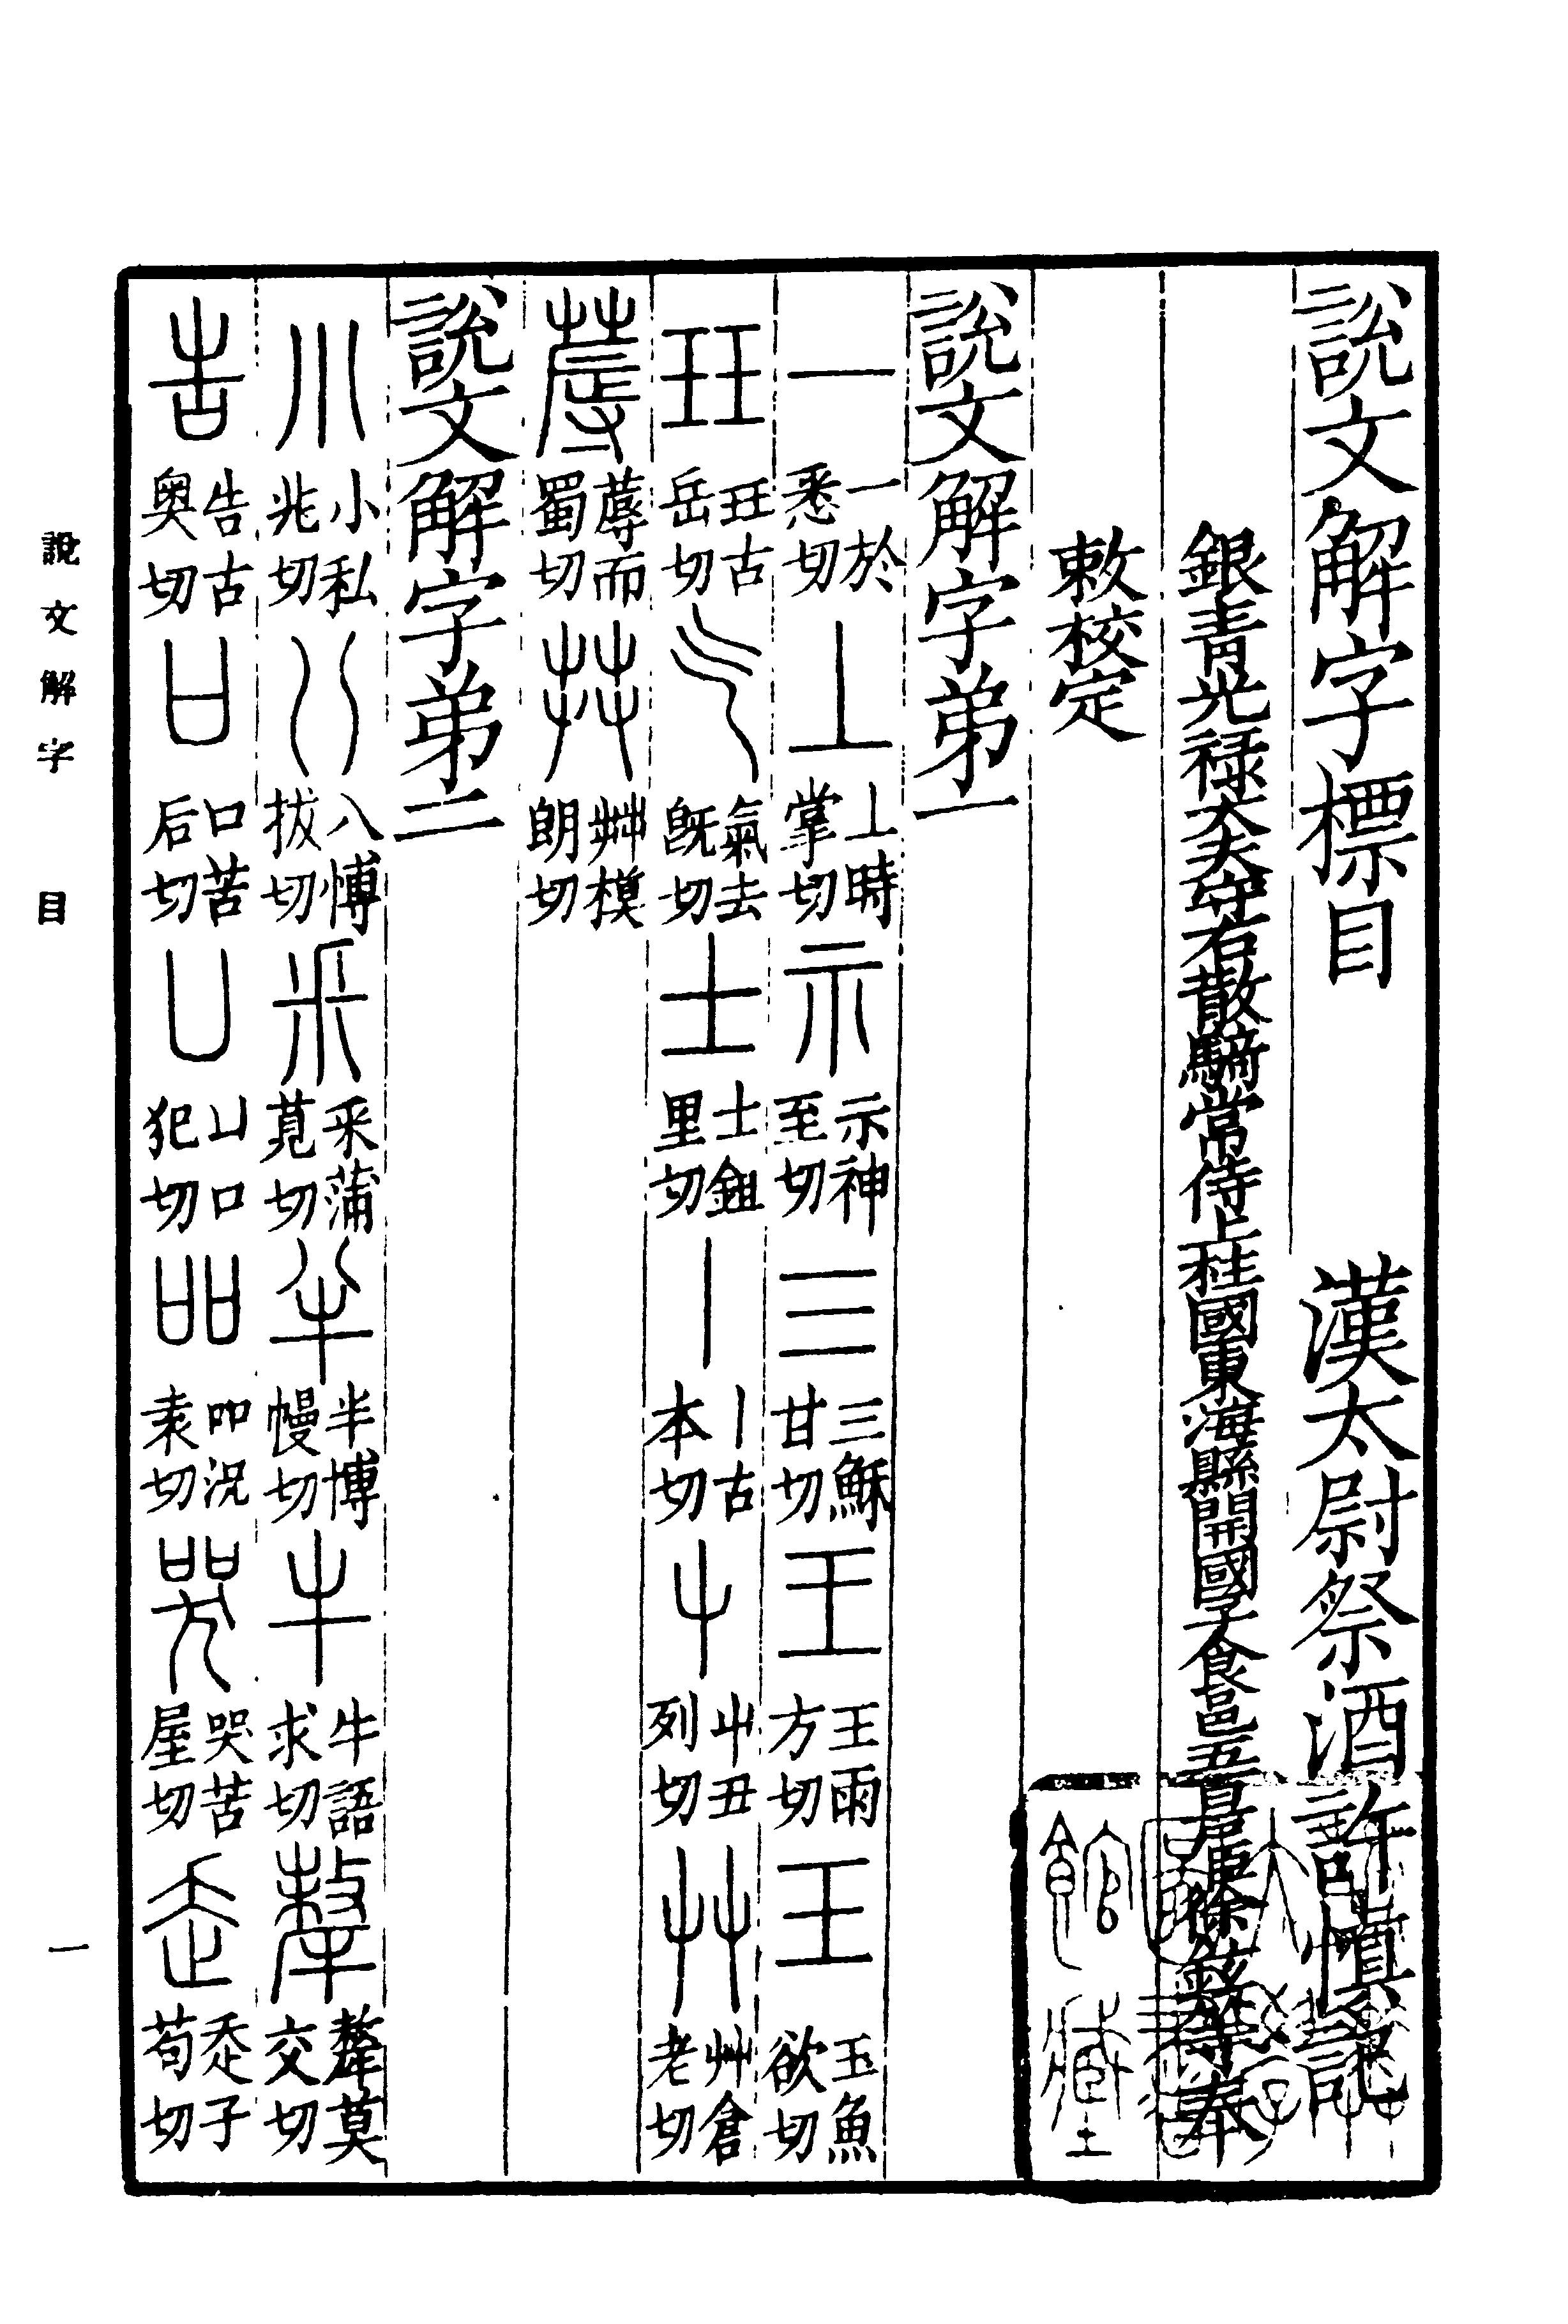 說文解字標目　漢太尉祭酒許慎記
銀青光祿大夫守右散騎常侍上柱國東海縣開國子食邑五百戶臣徐鉉等奉
敕校定
說文解字弟一
一 一於悉切 丄 丄時掌切 示 示神至切 三 三穌甘切 王 王雨方切 玉 玉魚欲切
玨 玨古岳切 气 氣去旣切 士 士鉏里切 丨 丨古本切 屮 屮丑列切 艸 艸倉老切
蓐 蓐而蜀切 茻 茻模朗切
說文解字弟二
小 小私兆切 八 八博拔切 釆 釆蒲莧切 半 半博幔切 牛 牛語求切 犛 犛莫交切
告 告古奥切 口 口苦后切 凵 凵口犯切 吅 吅況袁切 哭 哭苦屋切 走 赱子苟切
說文解字　目　一